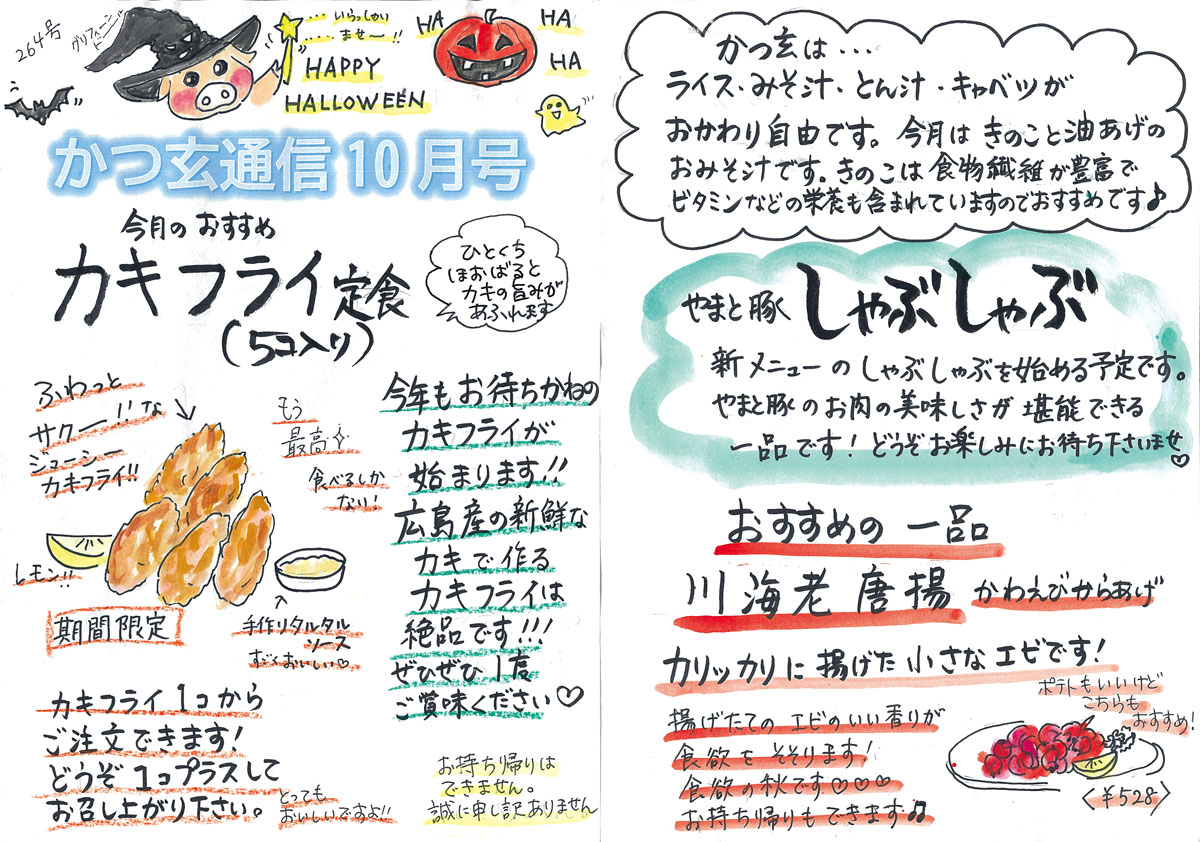 264号
グリフィンジャー
‥‥いらっしゃい
‥‥‥ませー!!
HAPPY
HALLOWEEN
HA
HA
HA
かつ玄通信10月号
今月のおすすめ
カキフライ定食
(5コ入り)
ひとくち
ほおばると
カキの旨みが
あふれます
ふわっと
サクー!!な
ジューシー
カキフライ!!
もう
最高
食べるしか
ない!
レモン!!
期間限定
手作りタルタル
ソース
すごくおいしい♡
カキフライ1コから
ご注文できます!
どうぞ1コプラスして
お召し上がり下さい。
とっても
おいしいですよ!!
今年もお待ちかねの
カキフライが
始まります!!
広島産の新鮮な
カキで作る
カキフライは
絶品です!!!
ぜひぜひ1度
ご賞味ください♡
お持ち帰りは
できません。
誠に申し訳ありません
かつ玄は・・・
ライス・みそ汁・とん汁・キャベツが
おかわり自由です。今月はきのこと油あげの
おみそ汁です。きのこは食物繊維が豊富で
ビタミンなどの栄養も含まれていますのでおすすめです♪
やまと豚 しゃぶしゃぶ
新メニューのしゃぶしゃぶを始める予定です。
やまと豚のお肉の美味しさが堪能できる
一品です!どうぞお楽しみにお待ち下さいませ♡
おすすめの一品
川海老唐揚 かわえびからあげ
カリッカリに揚げた小さなエビです!
揚げたてのエビのいい香りが
食欲をそそります!
食欲の秋です♡♡♡
お持ち帰りもできます♫
ポテトもいいけど
こちらも
おすすめ!
〈¥528〉